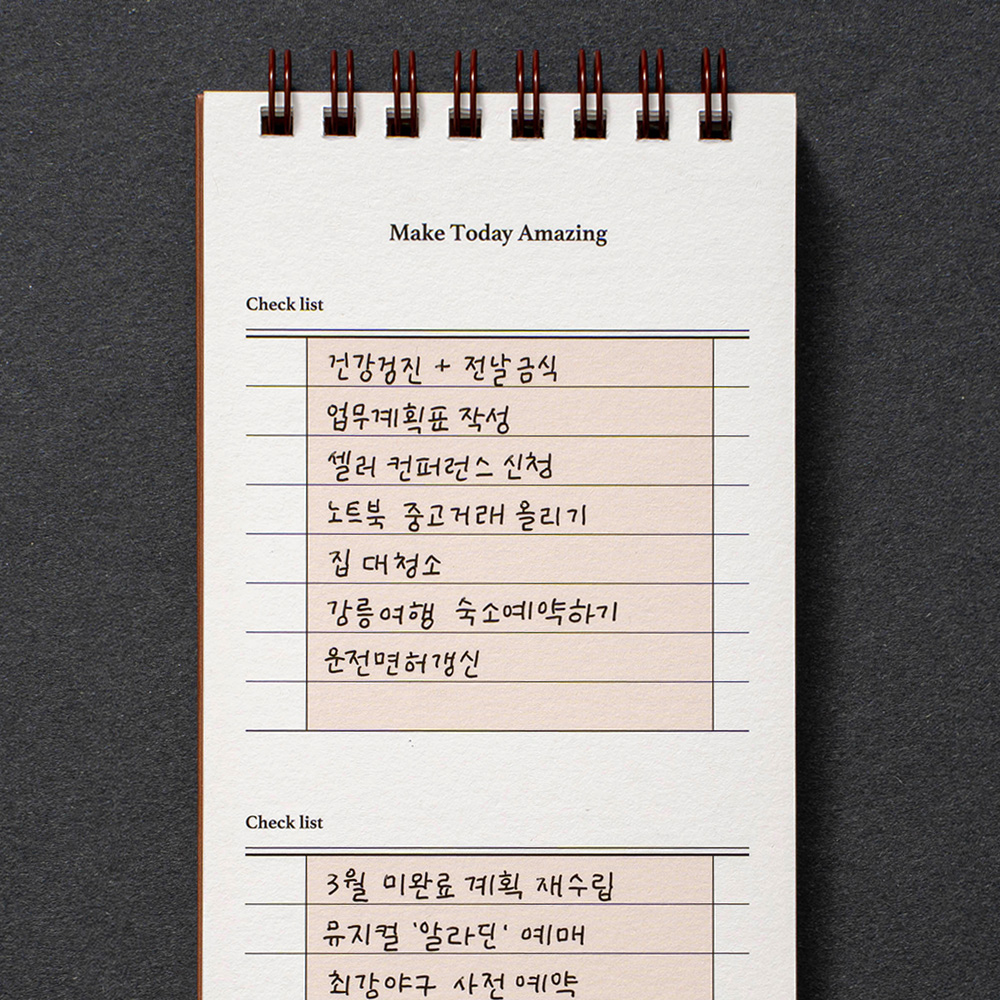 Make Today Amazing
Check list
건강검진 + 전날금식
업무계획표 작성
셀러 컨퍼런스 신청
노트북 중고거래 올리기
집 대청소
강릉여행 숙소예약하기
운전면허갱신
Check list
3월 미완료 계획 재수립
뮤지컬 '알라딘' 예매
최강야구 사전 예약